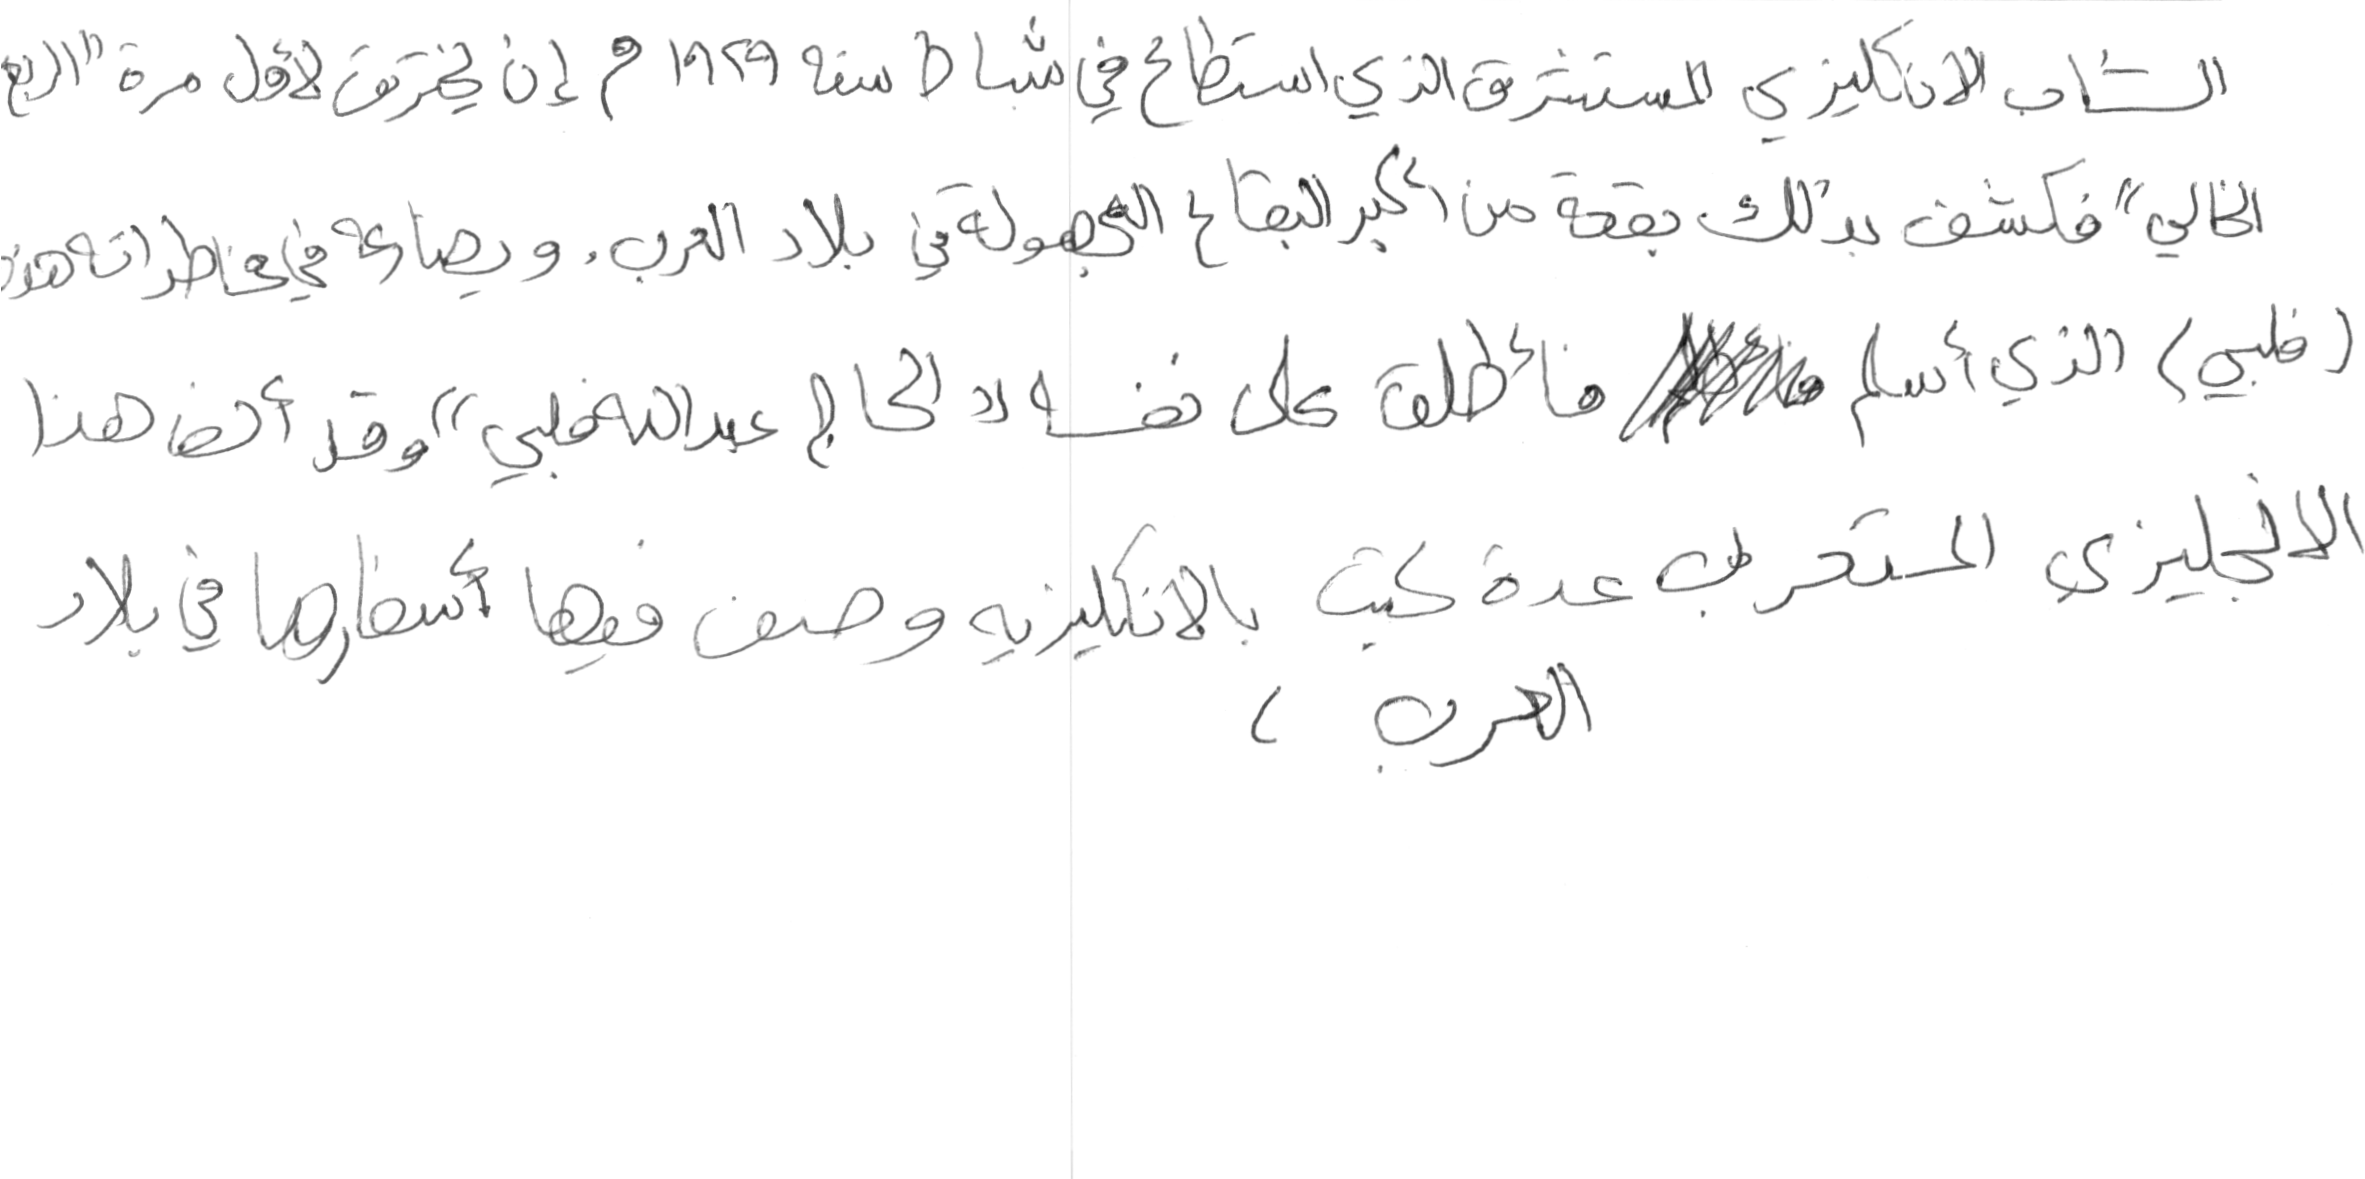 الشاب الانكليزي المستشرق الذي استطاع في شباط سنه ١٩٢٩ م إن يخترق لأول مرة "الربع
الخالي" فكشف بذلك بقعة من أكبر البقاع المجهولة في بلاد العرب. ويضارعه في مخاطراته هذه
(فلبي) الذي أسلم فأطلق على نفسه "الحاج عبدالله فلبي" وقد ألف هذا
الانجليزي المستعرب عدة كتب بالانكليزيه وصف فيها أسفارها في بلاد
العرب ،